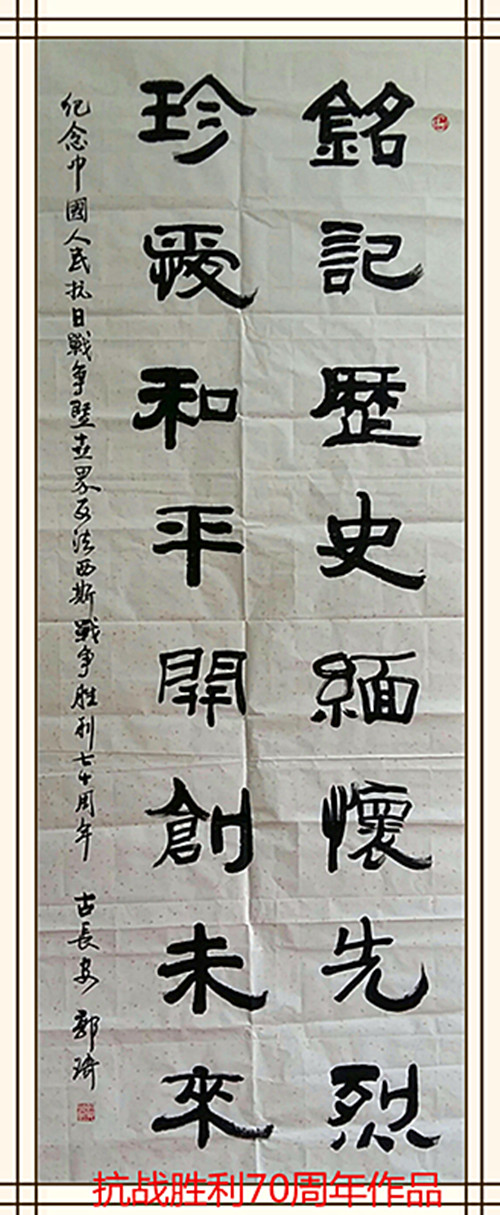 銘記歷史緬懷先烈
珍愛和平開創未來
纪念中國人民抗日戰争暨世界反法西斯戰争胜利七十周年
古長安 郭琦
抗战胜利70周年作品